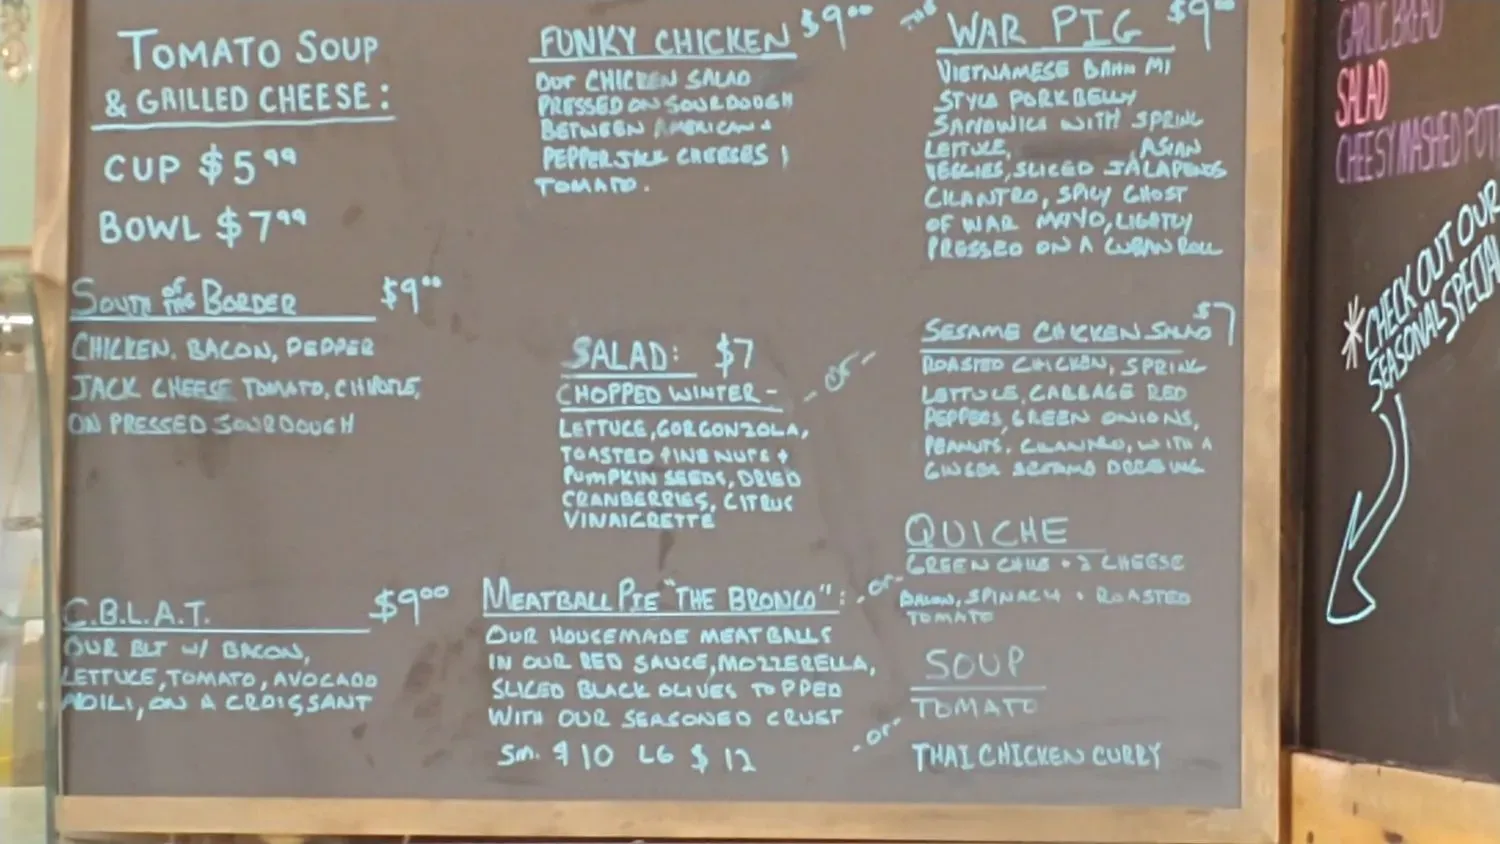 TOMATO SOUP
& GRILLED CHEESE:
CUP $5.99
BOWL $7.99
SOUTH OF THE BORDER $9.00
CHICKEN. BACON, PEPPER
JACK CHEESE TOMATO, CHIPOTLE,
ON PRESSED SOURDOUGH
C.B.L.A.T. $9.00
OUR BLT W/ BACON,
LETTUCE, TOMATO, AVOCADO
AIOLI, ON A CROISSANT
FUNKY CHICKEN $9.00
OUR CHICKEN SALAD
PRESSED ON SOURDOUGH
BETWEEN AMERICAN +
PEPPER JACK CHEESES,
TOMATO.
SALAD: $7
CHOPPED WINTER -
LETTUCE, GORGONZOLA,
TOASTED PINE NUTS +
PUMPKIN SEEDS, DRIED
CRANBERRIES, CITRUS
VINAIGRETTE
- OR -
MEATBALL PIE "THE BRONCO":
OUR HOUSEMADE MEATBALLS
IN OUR RED SAUCE, MOZZERELLA,
SLICED BLACK OLIVES TOPPED
WITH OUR SEASONED CRUST
SM. $10 LG $12
THE WAR PIG $9.00
VIETNAMESE BAHN MI
STYLE PORK BELLY
SANDWICH WITH SPRING
LETTUCE, , ASIAN
VEGGIES, SLICED JALAPENOS
CILANTRO, SPICY GHOST
OF WAR MAYO, LIGHTLY
PRESSED ON A CUBAN ROLL
SESAME CHICKEN SALAD $7
ROASTED CHICKEN, SPRING
LETTUCE, CABBAGE RED
PEPPERS, GREEN ONIONS,
PEANUTS, CILANTRO, WITH A
GINGER SESAME DRESSING
QUICHE
GREEN CHILE + 2 CHEESE
- OR -
BACON, SPINACH + ROASTED
TOMATO
SOUP
TOMATO
- OR -
THAI CHICKEN CURRY
GARLIC BREAD
SALAD
CHEESY MASHED POT
*CHECK OUT OUR
SEASONAL SPECIAL